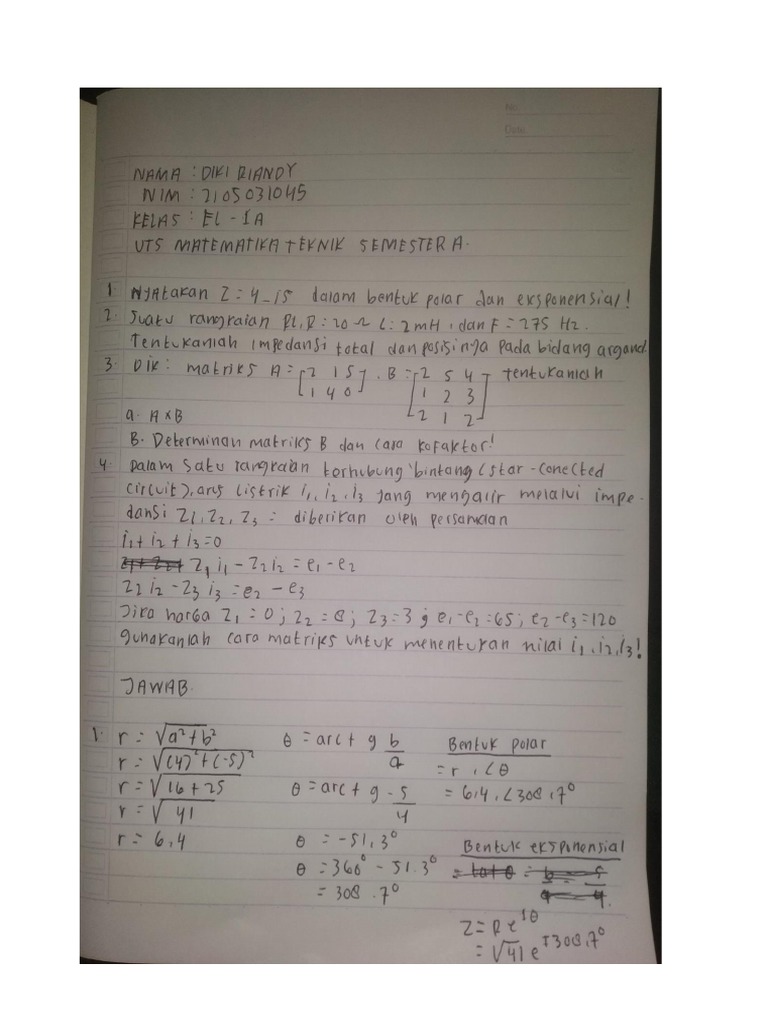 No.
Date.
NAMA : DIKI RIANDY
NIM : 2105031045
KELAS : EL - 1A
UTS MATEMATIKA TEKNIK SEMESTER A.
1. Nyatakan Z = 4 - i5 dalam bentuk polar dan eksponensial!
2. Suatu rangkaian RL, R = 20 Ω L = 2 mH, dan F = 275 Hz.
Tentukanlah impedansi total dan posisinya pada bidang argand.
3. Dik : matriks A = [2 1 5 . B = [2 5 4 tentukanlah
1 4 0] 1 2 3
2 1 2]
a. A x B
B. Determinan matriks B dan cara kofaktor!
4. Dalam satu rangkaian terhubung bintang (star - conected
circuit), arus listrik i1, i2, i3 yang mengalir melalui impe-
dansi Z1, Z2, Z3 = diberikan oleh persamaan
i1 + i2 + i3 = 0
Z1 i1 - Z2 i2 = e1 - e2
Z2 i2 - Z3 i3 = e2 - e3
Jika harga Z1 = 0 ; Z2 = 8 ; Z3 = 3 ; e1 - e2 = 65 ; e2 - e3 = 120
gunakanlah cara matriks untuk menentukan nilai i1, i2, i3!
JAWAB.
1. r = √a² + b² θ = arc t g b/a Bentuk polar
r = √(4)² + (-5)² = r . ∠θ
r = √16 + 25 θ = arc t g -5/4 = 6,4 . ∠308,7°
r = √41
r = 6,4 θ = -51,3° Bentuk eksponensial
θ = 360° - 51.3°
= 308.7°
Z = R e^iθ
= √41 e^i308,7°